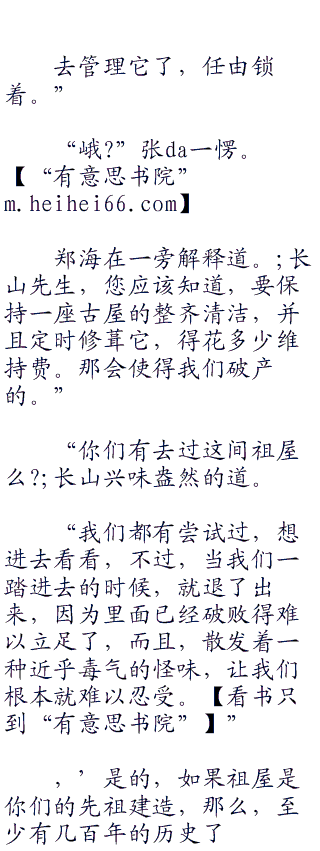 去管理它了，任由锁
着。”
“峨?”张da一愣。
【“有意思书院”
m.heihei66.com】
郑海在一旁解释道。;长
山先生，您应该知道，要保
持一座古屋的整齐清洁，并
且定时修葺它，得花多少维
持费。那会使得我们破产
的。”
“你们有去过这间祖屋
么?;长山兴味盎然的道。
“我们都有尝试过，想
进去看看，不过，当我们一
踏进去的时候，就退了出
来，因为里面已经破败得难
以立足了，而且，散发着一
种近乎毒气的怪味，让我们
根本就难以忍受。【看书只
到“有意思书院”】”
，’是的，如果祖屋是
你们的先祖建造，那么，至
少有几百年的历史了